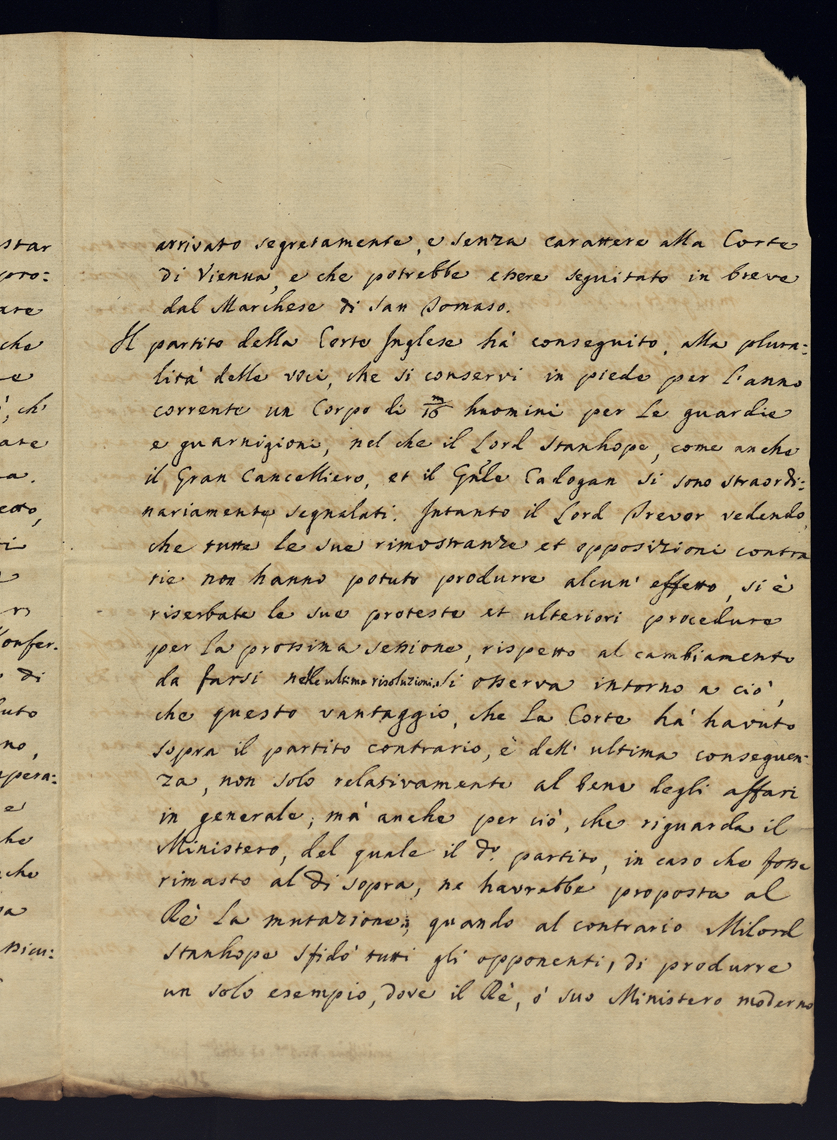 arrivato segretamente, e senza carattere alla Corte
di Vienna, e che potrebbe essere seguitato in breve
dal Marchese di San Tomaso.
Il partito della Corte Inglese há conseguito, alla plura:
litá delle voci, che si conservi in piede per l'anno
corrente un Corpo di m/16 huomini per le guardie
e guarnigioni, nel che il Lord Stanhope, come anche
il Gran Cancelliero, et il Gnle Cadogan si sono straordi:
nariamente segnalati. Intanto il Lord Trevor vedendo,
che tutte le sue rimostranze et opposizioni contra
rie non hanno potuto produrre alcun' effetto, si è
riserbate le sue proteste et ulteriori procedure
per la prossima sessione, rispetto al cambiamento
da farsi nelle ultime risoluzioni. Si osserva intorno a ció,
che questo vantaggio, che la Corte há havuto
sopra il partito contrario, é dell' ultima conseguen:
za, non solo relativamente al bene degli affari
in generale, má anche per ció, che riguarda il
Ministero, del quale il do. partito, in caso che fosse
rimasto al di sopra, ne havrebbe proposta al
Ré la mutazione; quando al contrario Milord
Stanhope sfidó tutti gli opponenti, di produrre
un solo esempio, dove il Ré, ó suo Ministero moderno
star
pro:
are
che
e
, ch'
are
a.
ti
r
Confer:
di
uto
no,
pera:
e
he
che
sa
ssicu: